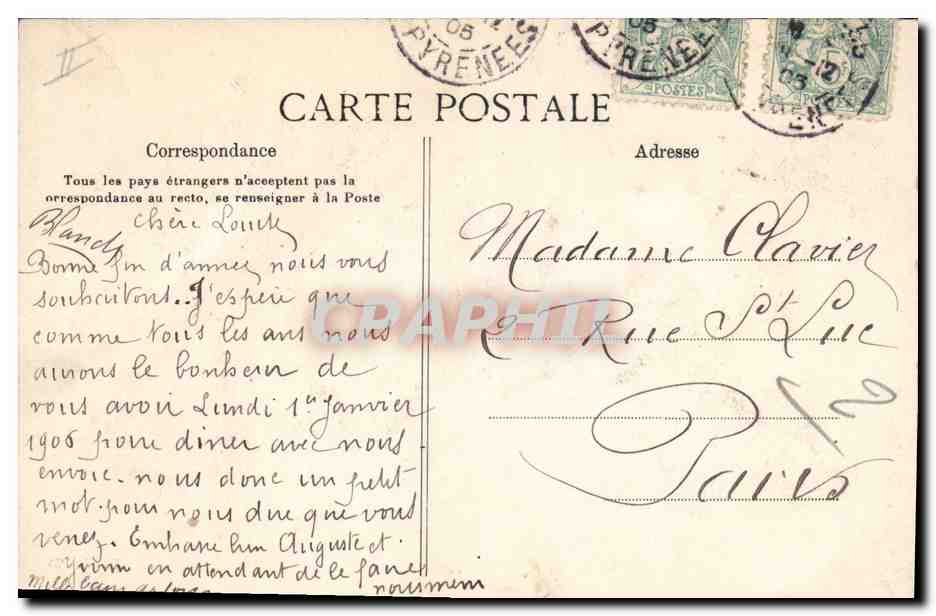 II
05
PYRENEES
05
PYRENEES
12
05
POSTES
POSTES
CARTE POSTALE
Correspondance
Adresse
Tous les pays étrangers n'acceptent pas la
orrespondance au recto, se renseigner à la Poste
Chère
Bonne fin d'année nous vous
souhaitons.. J'espère que
comme tous les ans nous
aurons le bonheur de
vous avoir Lundi 1er Janvier
1906 pour diner avec nous
envoie. nous donc un petit
mot pour nous dire que vous
venez. Embrasse bien Auguste et
Yvonne en attendant de le faire
nous mem
Mille
Madame Clavier
2 Rue St Luc
Paris
2
CRAPHIL